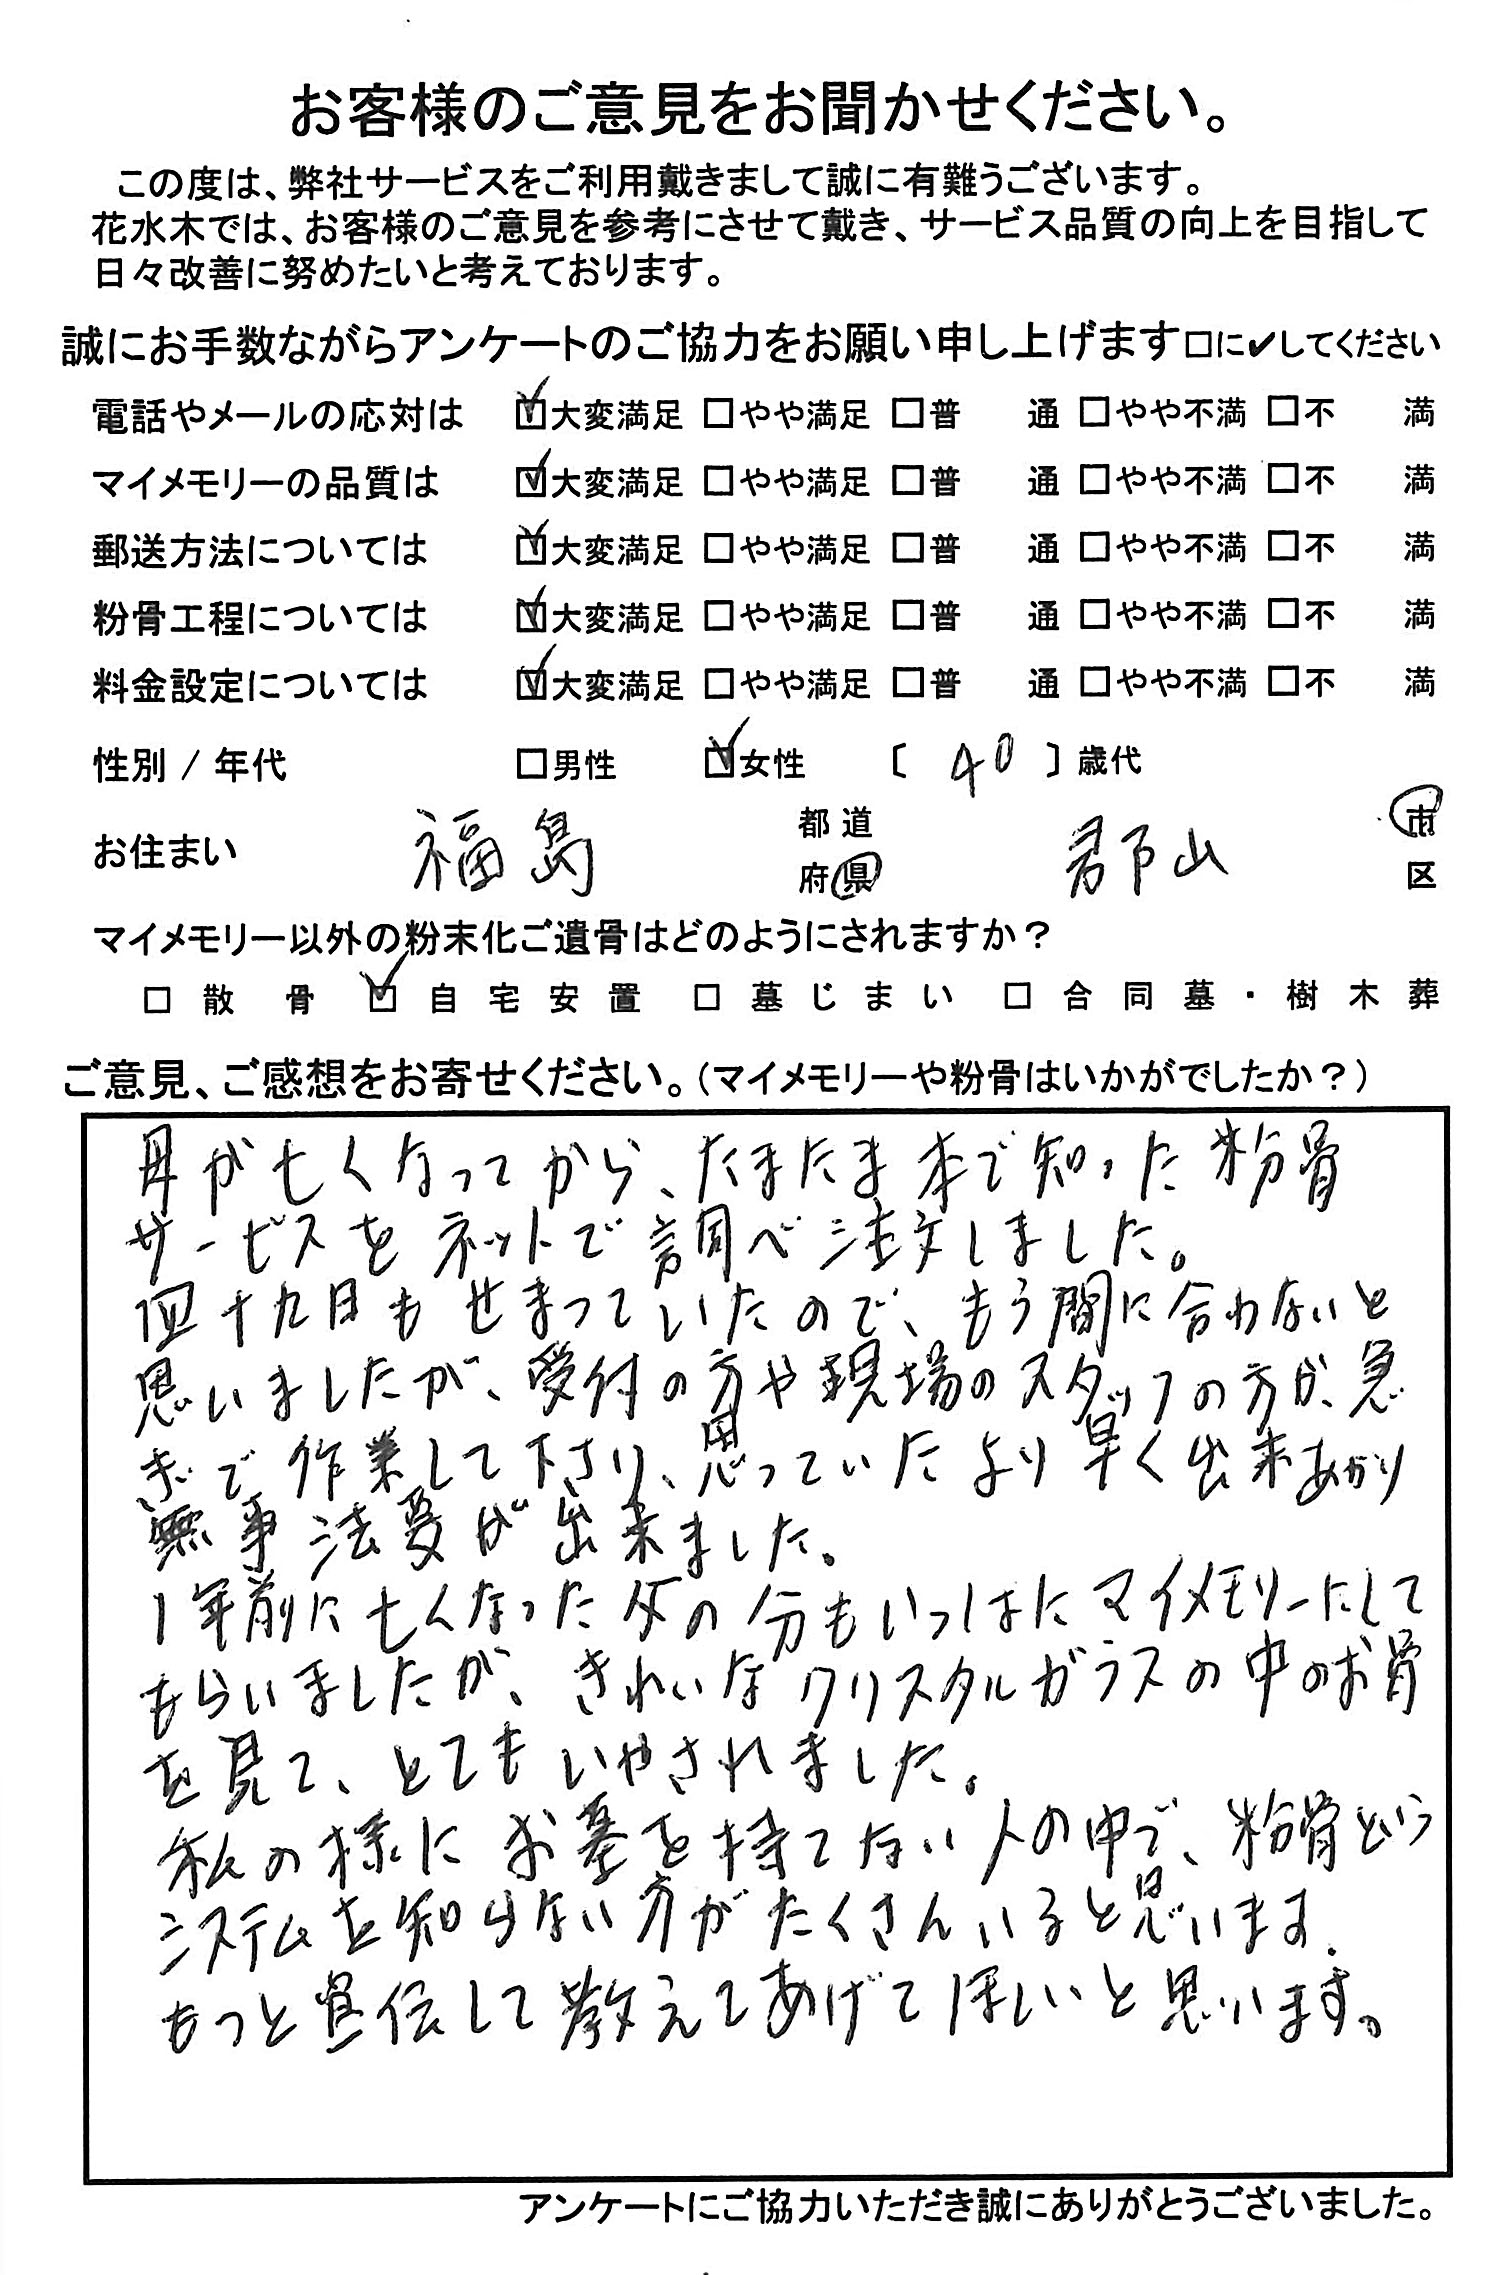 お客様のご意見をお聞かせください。
この度は、弊社サービスをご利用戴きまして誠に有難うございます。
花水木では、お客様のご意見を参考にさせて戴き、サービス品質の向上を目指して
日々改善に努めたいと考えております。
誠にお手数ながらアンケートのご協力をお願い申し上げます□に✔してください
電話やメールの応対は ☑大変満足 □やや満足 □普 通 □やや不満 □不 満
マイメモリーの品質は ☑大変満足 □やや満足 □普 通 □やや不満 □不 満
郵送方法については ☑大変満足 □やや満足 □普 通 □やや不満 □不 満
粉骨工程については ☑大変満足 □やや満足 □普 通 □やや不満 □不 満
料金設定については ☑大変満足 □やや満足 □普 通 □やや不満 □不 満
性別 / 年代 □男性 ☑女性 〔 40 〕歳代
お住まい 福島 都道府県 郡山 市区
マイメモリー以外の粉末化ご遺骨はどのようにされますか？
□ 散骨 ☑ 自宅安置 □ 墓じまい □ 合同墓・樹木葬
ご意見、ご感想をお寄せください。（マイメモリーや粉骨はいかがでしたか？）
母が亡くなってから、たまたま本で知った粉骨
サービスをネットで調べ注文しました。
四十九日もせまっていたので、もう間に合わないと
思いましたが、受付の方や現場のスタッフの方が、急
ぎで作業して下さり、思っていたより早く出来あがり
無事法要が出来ました。
1年前に亡くなった父の分もいっしょにマイメモリーにして
もらいましたが、きれいなクリスタルガラスの中のお骨
を見て、とてもいやされました。
私の様にお墓を持てない人の中で、粉骨という
システムを知らない方がたくさんいると思います。
もっと宣伝して教えてあげてほしいと思います。
アンケートにご協力いただき誠にありがとうございました。